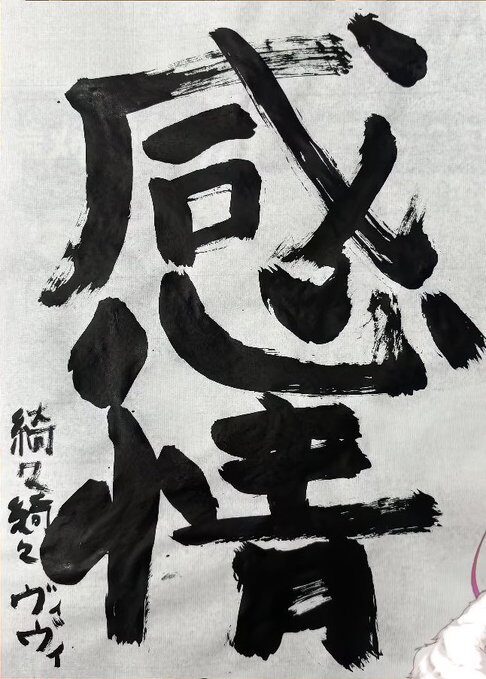 感情
綺々綺々 ヴィヴィ